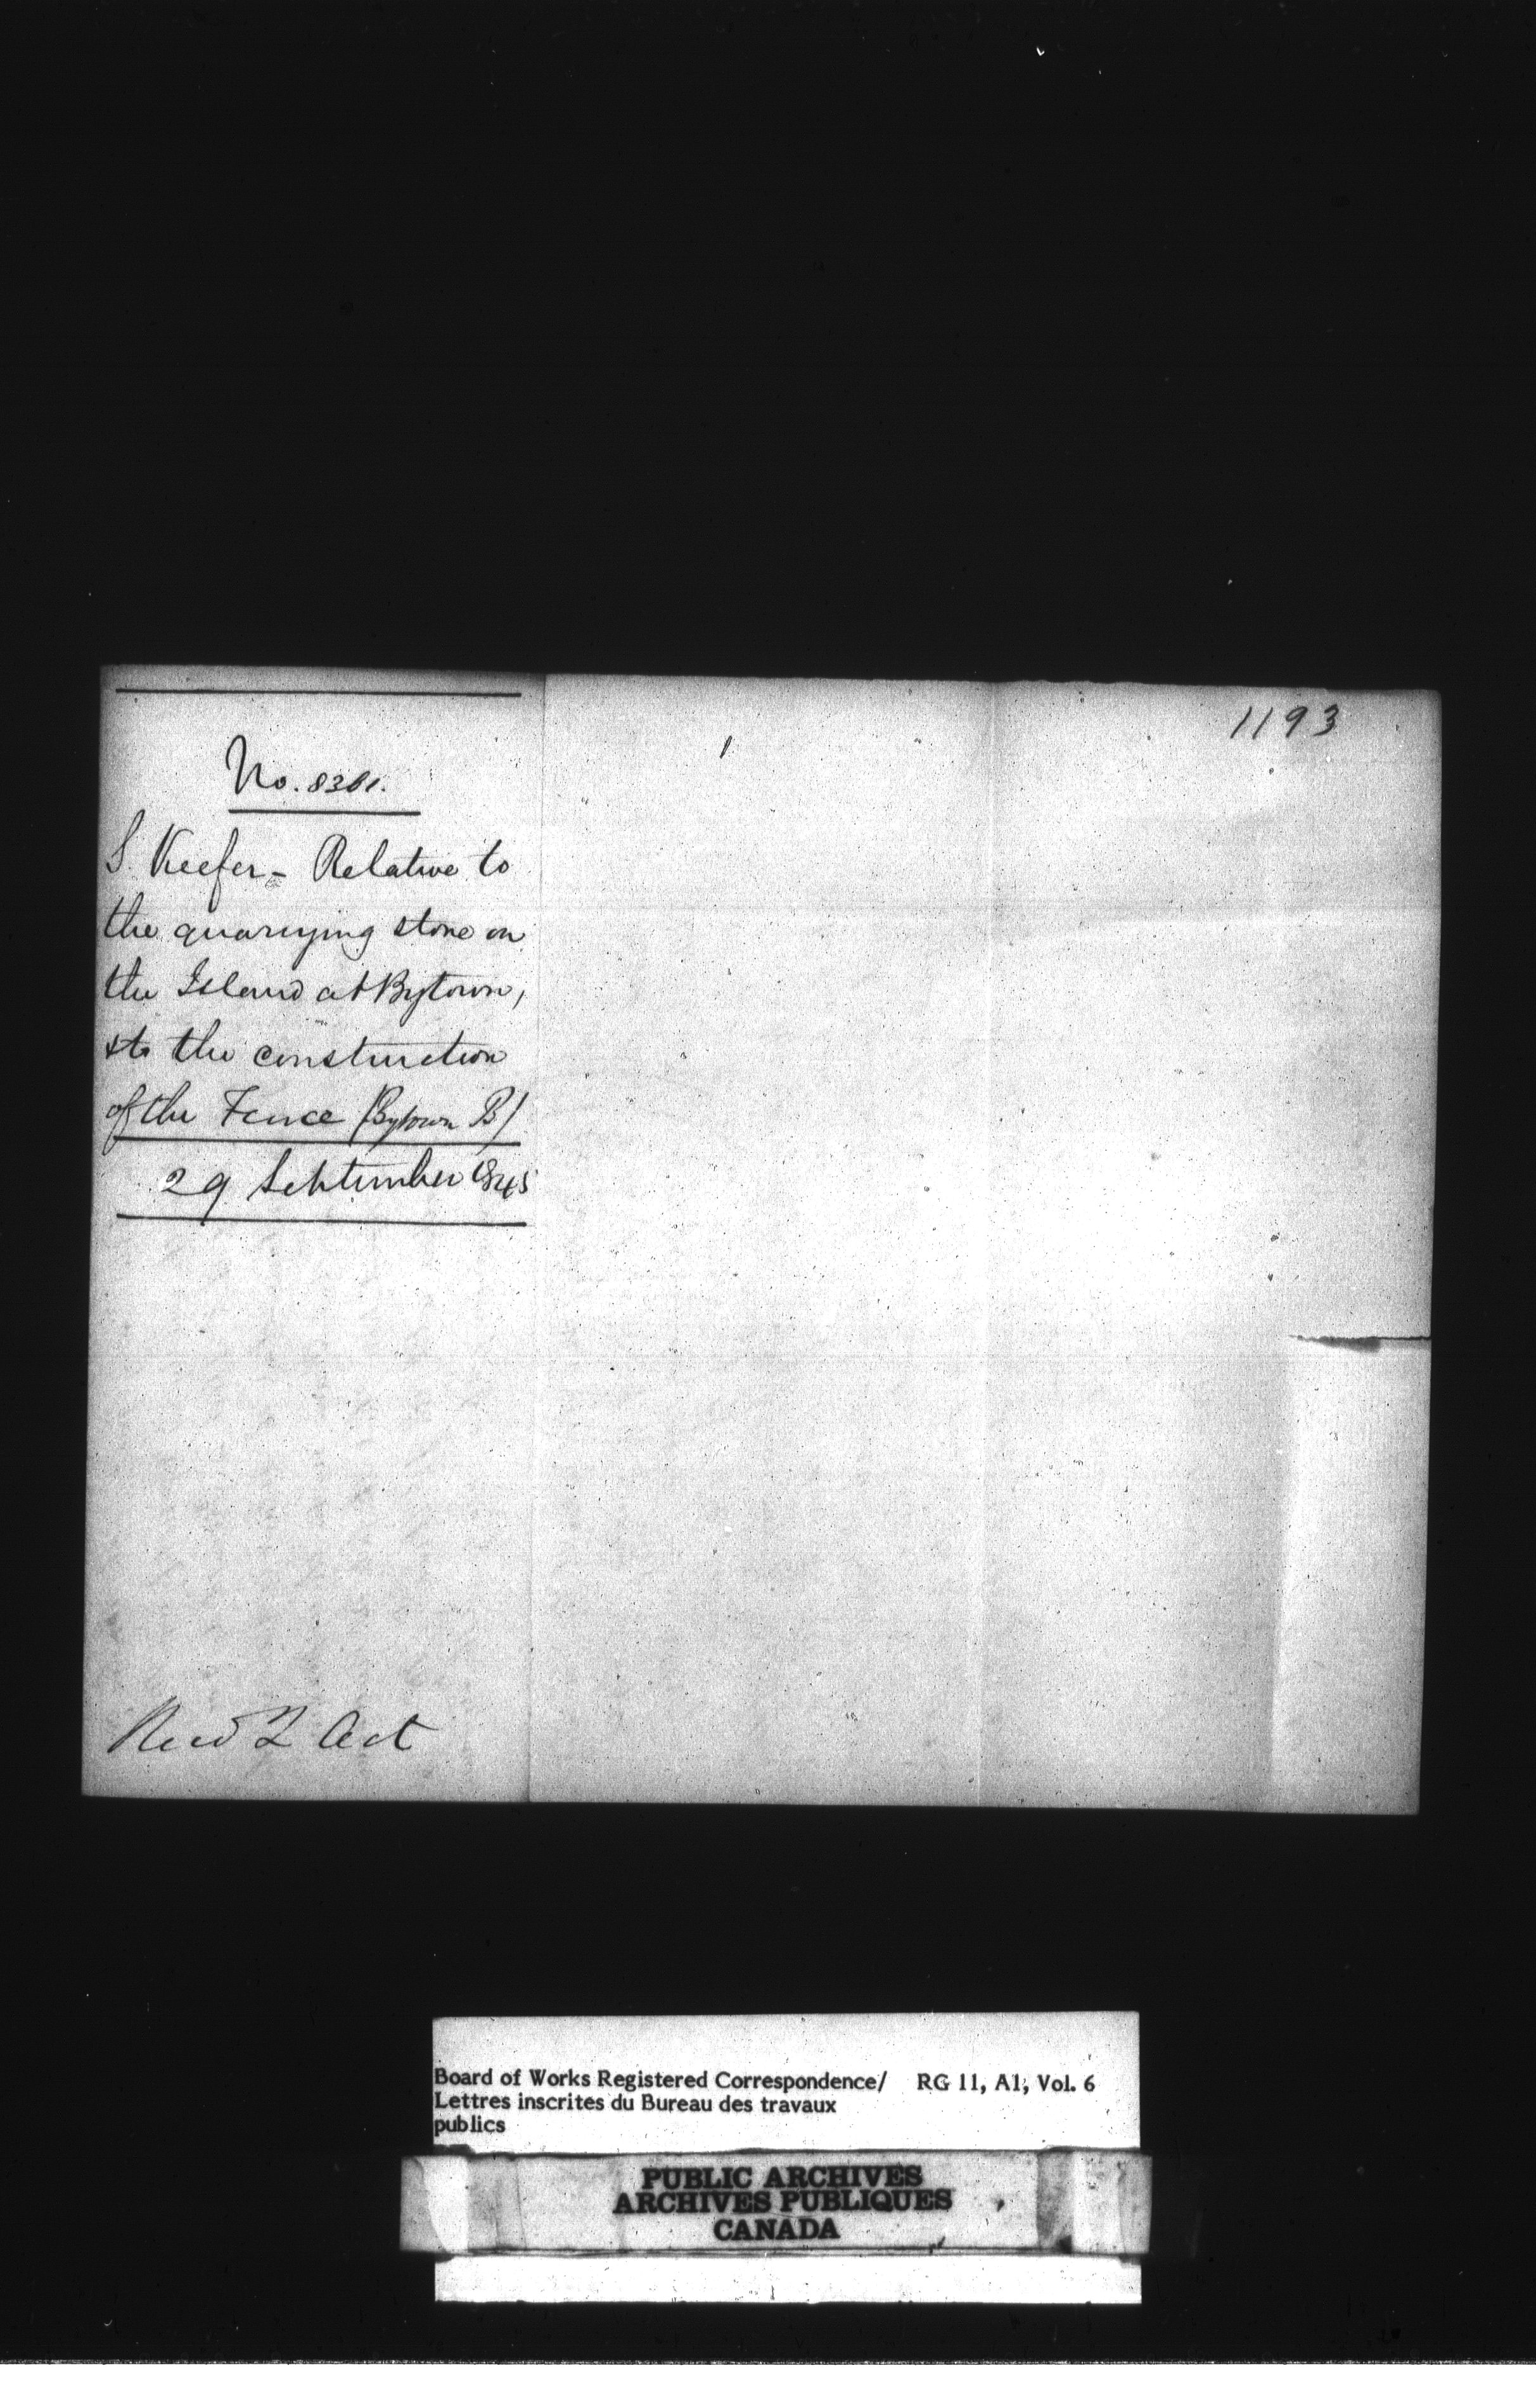 1193
No. 8361.
S. Keefer - Relative to
the quarrying stone on
the Island at Bytown,
& to the construction
of the Fence (Bytown B)
29 September 1845
Recd 2 Oct
Board of Works Registered Correspondence/ RG 11, A1, Vol. 6
Lettres inscrites du Bureau des travaux
publics
PUBLIC ARCHIVES
ARCHIVES PUBLIQUES
CANADA